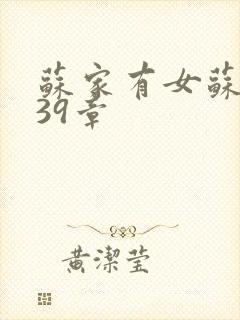 蘇家有女蘇
39章
黄潔莹